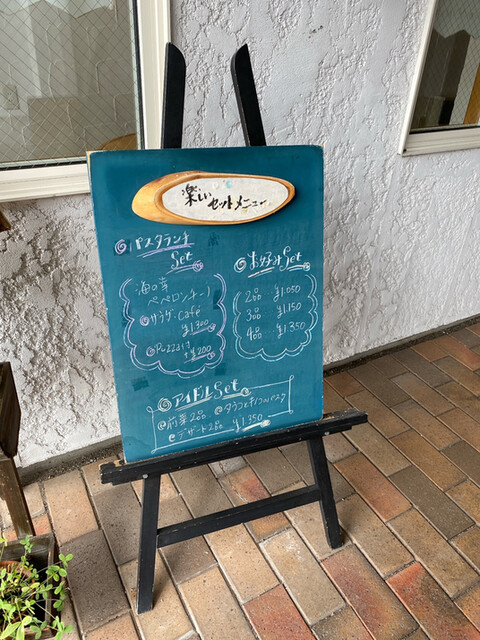 楽しい
セットメニュー
パスタランチ
Set
海の幸
ペペロンチーノ
サラダ・Café
¥1.300
Pizza
+¥200
お好み Set
2品 ¥1.050
3品 ¥1.150
4品 ¥1.350
アイドル Set
前菜2品
デザート2品 ¥1.350